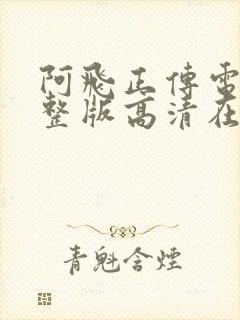 阿飛正傳電
整版高清在
青魁含煙